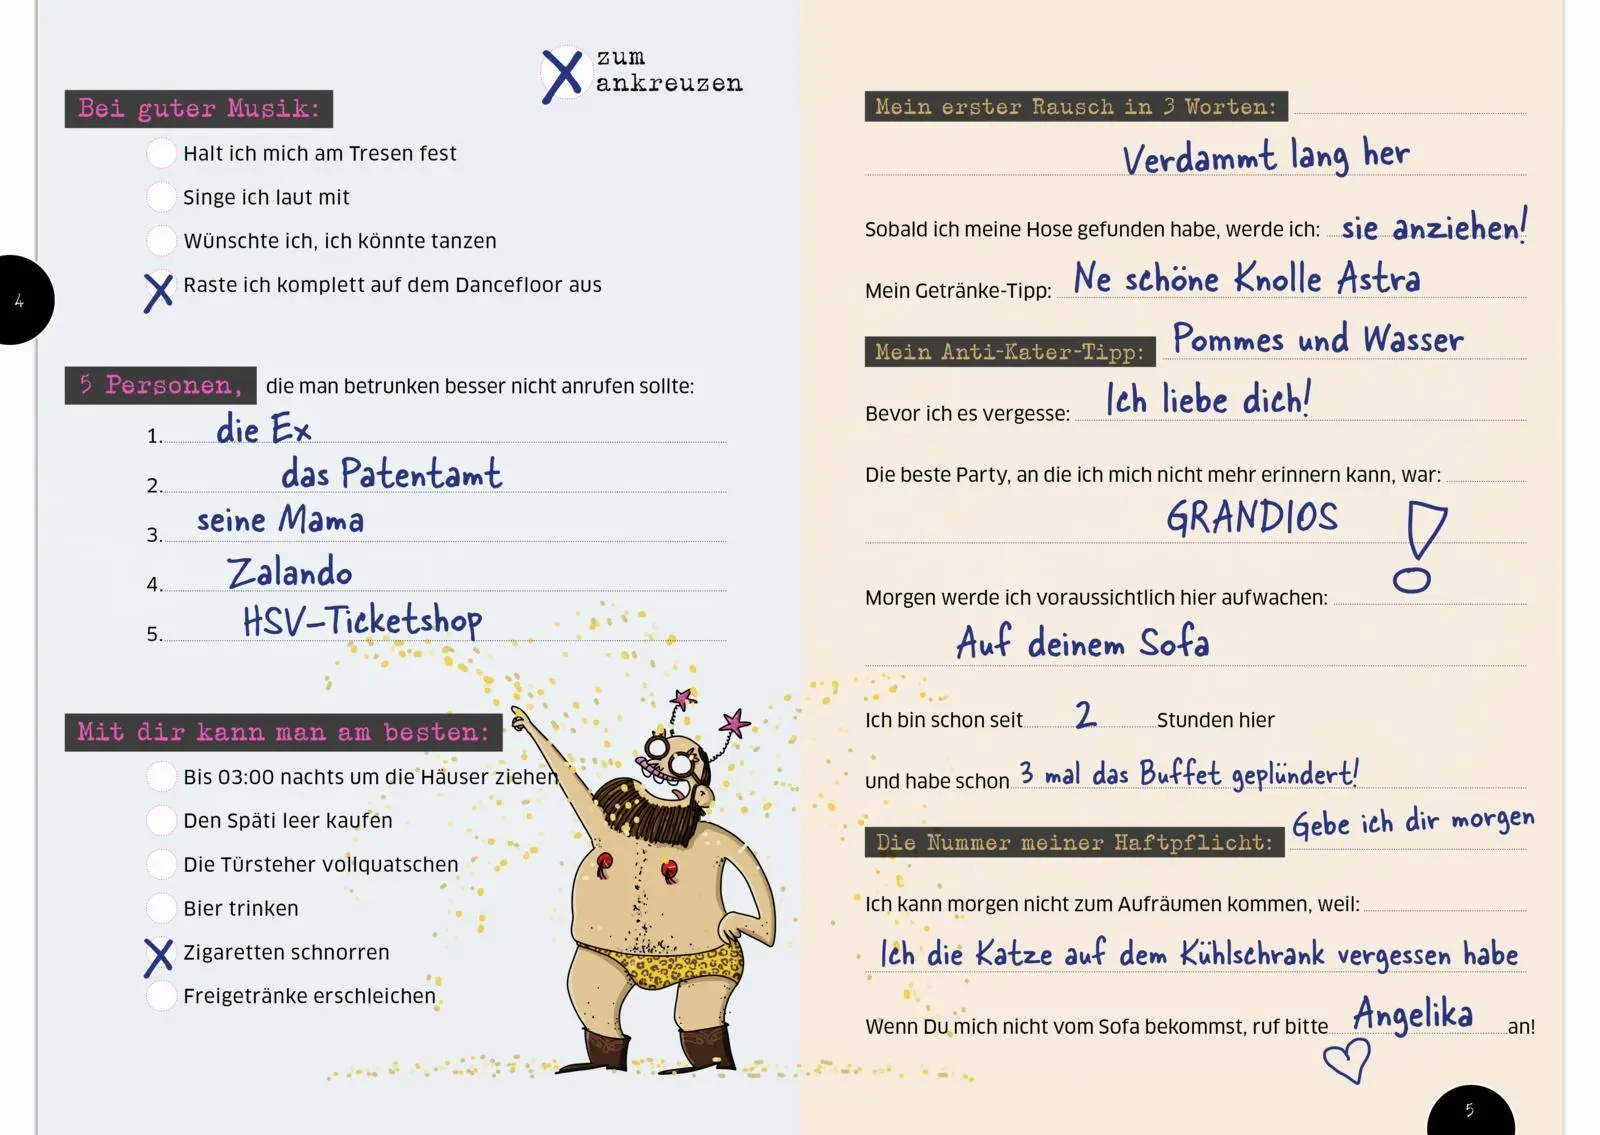 zum
ankreuzen
Bei guter Musik:
Halt ich mich am Tresen fest
Singe ich laut mit
Wünschte ich, ich könnte tanzen
Raste ich komplett auf dem Dancefloor aus
4
5 Personen, die man betrunken besser nicht anrufen sollte:
1. die Ex
2. das Patentamt
3. seine Mama
4. Zalando
5. HSV-Ticketshop
Mit dir kann man am besten:
Bis 03:00 nachts um die Häuser ziehen
Den Späti leer kaufen
Die Türsteher vollquatschen
Bier trinken
Zigaretten schnorren
Freigetränke erschleichen
Mein erster Rausch in 3 Worten:
Verdammt lang her
Sobald ich meine Hose gefunden habe, werde ich: sie anziehen!
Mein Getränke-Tipp: Ne schöne Knolle Astra
Mein Anti-Kater-Tipp: Pommes und Wasser
Bevor ich es vergesse: Ich liebe dich!
Die beste Party, an die ich mich nicht mehr erinnern kann, war:
GRANDIOS !
Morgen werde ich voraussichtlich hier aufwachen:
Auf deinem Sofa
Ich bin schon seit 2 Stunden hier
und habe schon 3 mal das Buffet geplündert!
Die Nummer meiner Haftpflicht: Gebe ich dir morgen
Ich kann morgen nicht zum Aufräumen kommen, weil:
Ich die Katze auf dem Kühlschrank vergessen habe
Wenn Du mich nicht vom Sofa bekommst, ruf bitte Angelika an!
5